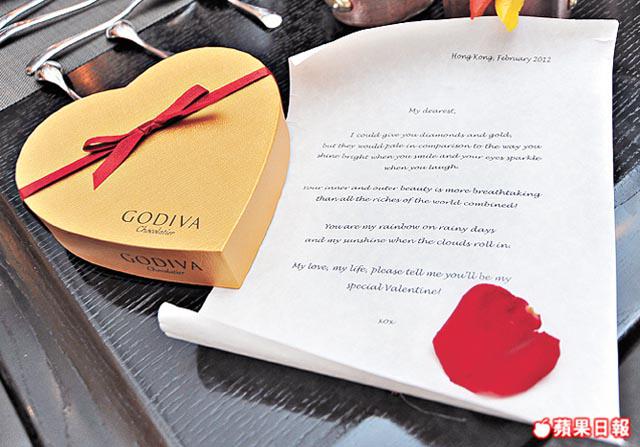 GODIVA
Chocolatier
GODIVA
Chocolatier
Hong Kong, February 2012
My dearest,
I could give you diamonds and gold,
but they would pale in comparison to the way you
shine bright when you smile and your eyes sparkle
when you laugh.
Your inner and outer beauty is more breathtaking
than all the riches of the world combined!
You are my rainbow on rainy days
and my sunshine when the clouds roll in.
My love, my life, please tell me you'll be my
special Valentine!
xox
蘋果日報